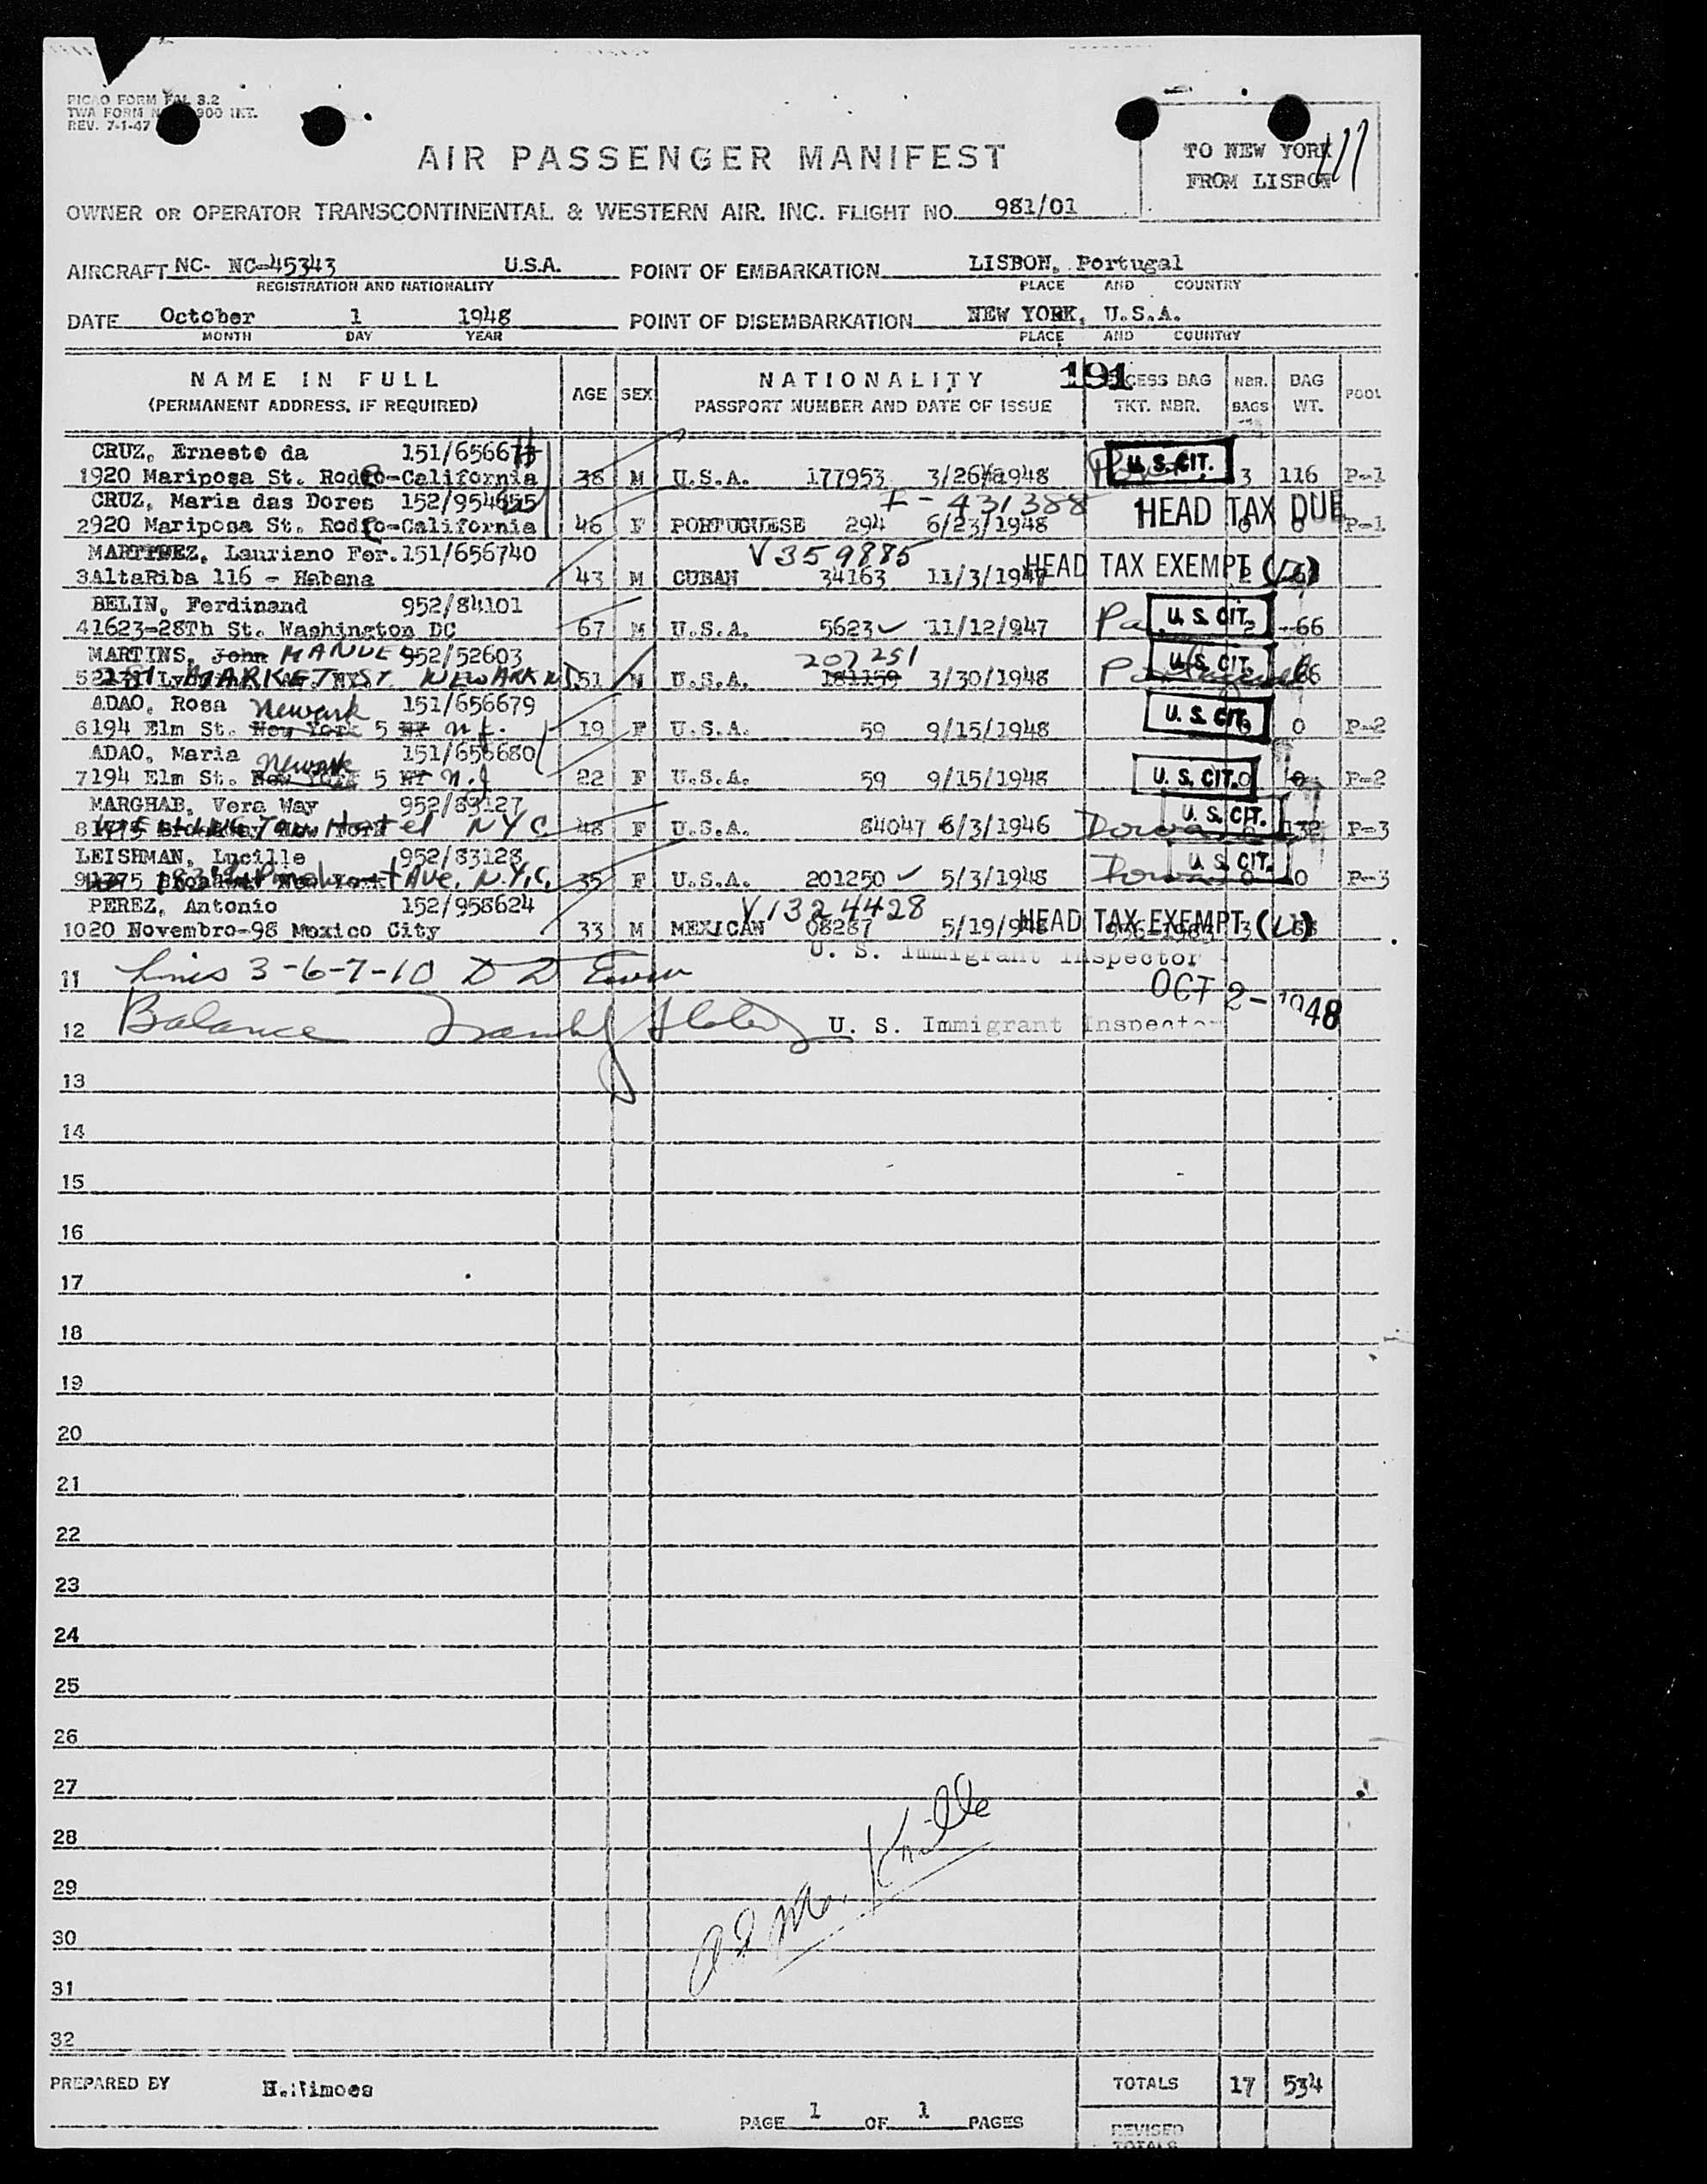 PICAO FORM FAL 3.2
TWA FORM 900 INT.
REV. 7-1-47
AIR PASSENGER MANIFEST
TO NEW YORK
FROM LISBON
OWNER OR OPERATOR TRANSCONTINENTAL & WESTERN AIR. INC. FLIGHT NO. 981/01
AIRCRAFT NC- NC-45343 U.S.A. POINT OF EMBARKATION LISBON, Portugal
REGISTRATION AND NATIONALITY PLACE AND COUNTRY
DATE October 1 1948 POINT OF DISEMBARKATION NEW YORK, U.S.A.
MONTH DAY YEAR PLACE AND COUNTRY
NAME IN FULL AGE SEX NATIONALITY 191 CESS BAG NBR. BAG POOL
(PERMANENT ADDRESS, IF REQUIRED) PASSPORT NUMBER AND DATE OF ISSUE TKT. NBR. BAGS WT.
CRUZ, Ernesto da
1920 Mariposa St. Rodeo-California 38 M U.S.A. 177953 3/26/1948 U.S. CIT. 3 116 P-1
CRUZ, Maria das Dores I-431388
2920 Mariposa St. Rodeo-California 46 F PORTUGUESE 294 6/23/1948 HEAD TAX DUE 0 0 P-1
MARTINEZ, Lauriano Fer. 151/656740 V359885
3AltaRiba 116 - Habana 43 M CUBAN 34163 11/3/1947 HEAD TAX EXEMPT
BELIN, Ferdinand 952/84101
41623-28Th St. Washington DC 67 M U.S.A. 5623 11/12/947 U. S. CIT. 2 66
MARTINS, John MANUEL 952/52603 207251
5 281 MARKET ST. NEWARK NJ 51 M U.S.A. 181159 3/30/1948 U. S. CIT. 66
ADAO, Rosa Newark 151/656679
6194 Elm St. New York 5 NY N.J. 19 F U.S.A. 59 9/15/1948 U. S. CIT. 0 0 P-2
ADAO, Maria Newark 151/656680
7194 Elm St. New York 5 NY N.J 22 F U.S.A. 59 9/15/1948 U. S. CIT. 0 0 P-2
MARGHAB, Vera Way 952/83127
8 Hotel NYC 48 F U.S.A. 84047 6/3/1946 U. S. CIT. 132 P-3
LEISHMAN, Lucille 952/83128
9 Ave. N.Y.C. 35 F U.S.A. 201250 5/3/1948 U. S. CIT. 0 0 P-3
PEREZ, Antonio 152/958624 V1324428
1020 Novembro-98 Mexico City 33 M MEXICAN 08287 5/19/948 HEAD TAX EXEMPT 3
U. S. Immigrant Inspector
11 Lines 3-6-7-10
OCT 2-1948
12 Balance U. S. Immigrant Inspector
13
14
15
16
17
18
19
20
21
22
23
24
25
26
27
28
29
30
31
32
PREPARED BY TOTALS 17 534
PAGE 1 OF 1 PAGES
REVISED
TOTALS